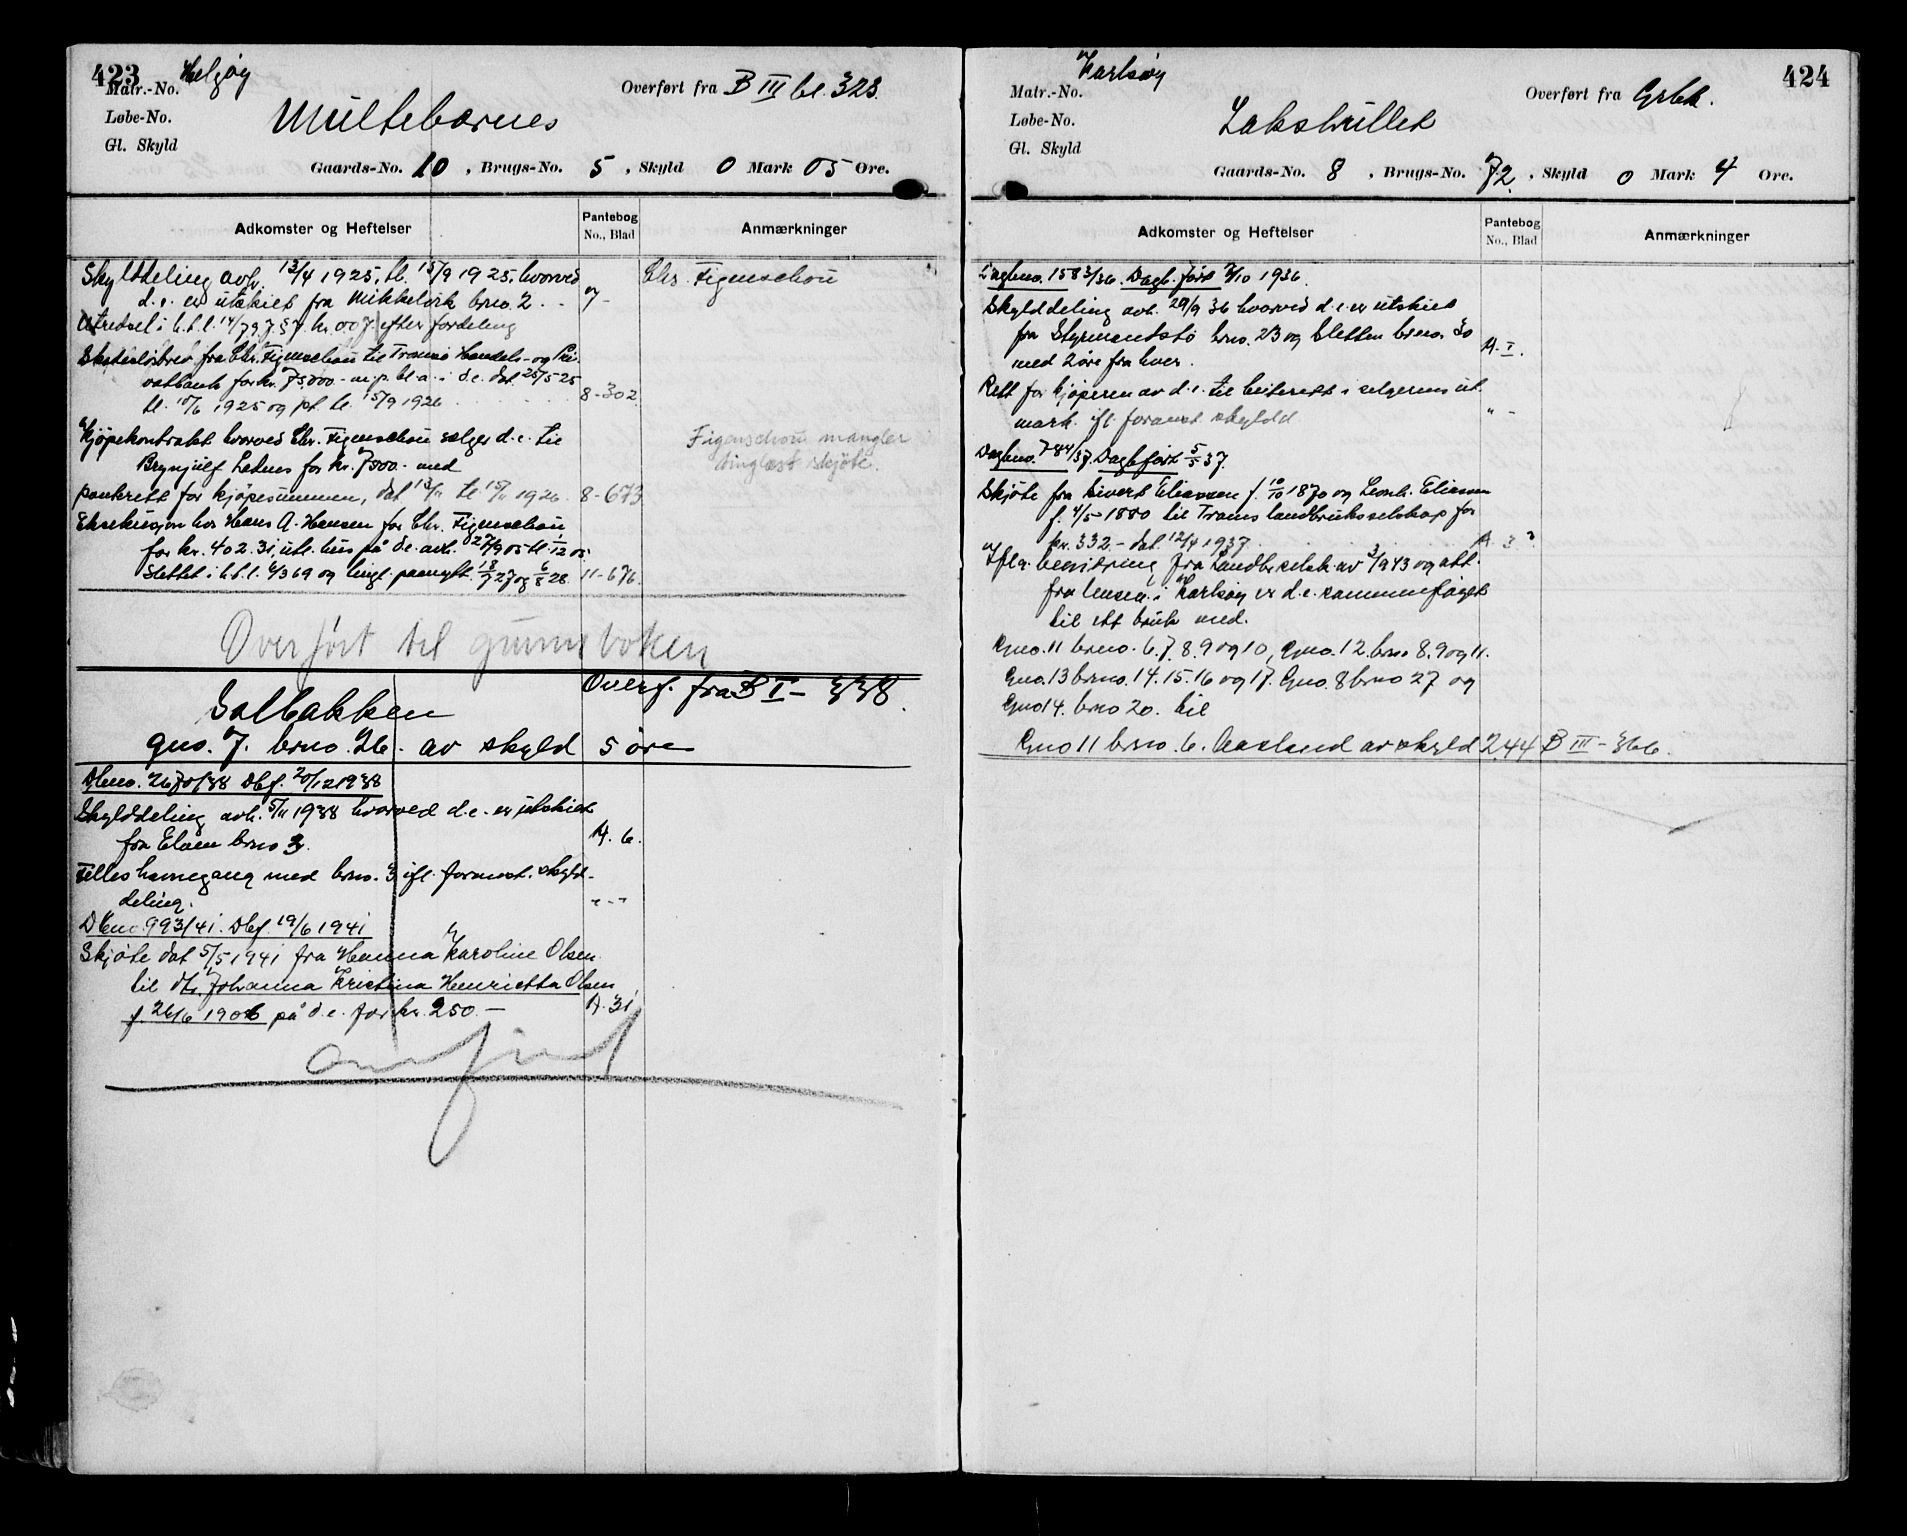 423
Helgøy
Matr.-No.
Løbe-No.
Gl. Skyld
Overført fra B III bl. 323.
Multebærnes
Gaards-No. 10, Brugs-No. 5, Skyld 0 Mark 05 Øre.
Adkomster og Heftelser
Pantebog No., Blad
Anmærkninger
Skylddeling avh. 13/4 1925, tl. 15/9 1925, hvorved
d.e. er utskilt fra Mikkelvik brno. 2. - 
Chr. Figenschou
Utredsel i h.t.l. 14/7 97 § 7 kr. 007. efter fordeling
fra Chr. Figenschou til Tromsø Handels- og Pri-
vatbank for kr. 75,000.- m.p. bl.a. i d.e. dat. 25/5 25
tl. 10/6 1925 og pt. tl. 15/9 1926 8-302.
Kjøpekontrakt hvorved Chr. Figenschou selger d.e. til
Brynjulf for kr. 7500.- med
Figenschou mangler
tinglæst skjøte.
panterett for kjøpesummen, dat 13/11 tl 15/11 1926. 8-673
Eksekusjon hos Hans A. Hensen for Chr. Figenschou
for kr. 402.31, utl. hus på d.e. avh. 27/9 05 tl. 1/12 05
Slettet i h.t.l. 6/3 69 og tingl. paanytt. 18/7 27 og 6/8 28. 11-676.
Overført til grunnboken
Overf. fra B I - 338.
Solbakken
gno. 7. brno. 26. av skyld 5 øre
Dbno. 2670/38 Dbf. 20/12 1938
Skylddeling avh. 5/11 1938 hvorved d.e. er utskilt
fra Elven brno 3. A. 6.
Felles havnegang med brno. 3 ifl. formst. skyld-
deling. - " -
Dbno. 993/41. Dbf. 19/6 1941
Skjøte dat 5/5 1941 fra Hanna Karoline Olsen
til dtr. Johanna Kristina Henrietta Olsen
f. 26/6 1906 på d.e. for kr. 250.- A. 31
Overført
424
Karlsøy
Matr.-No.
Løbe-No.
Gl. Skyld
Overført fra Grbk.
Lakshullet
Gaards-No. 8, Brugs-No. 72, Skyld 0 Mark 4 Øre.
Adkomster og Heftelser
Pantebog No., Blad
Anmærkninger
Dagbno. 1583/36. Dagb.ført 2/10 1936.
Skylddeling avh. 29/9 36 hvorved d.e. er utskilt
fra Styrmandstø brno. 23 og Sletten brno. 30
med 2 øre fra hver. A. I.
Rett for kjøperen av d.e. til beiterett i selgerens ut-
mark. ifl. foranst skyldd " -
Dagbno. 784/37. Dagb.ført 5/5 37.
Skjøte fra Sivert Eliassen f. 10/10 1870 og Leonh. Eliassen
f. 4/5 1880 til Troms landbruksselskap for
kr. 332.- dat. 12/4 1937. A. 3
Iflg. bevitning fra Landbr.selsk. av 3/1 943 og att.
fra lensm. i Karlsøy er d.e. sammenføyet
til ett bruk med.
Gno. 11 brno. 6. 7. 8. 9 og 10, Gno. 12. brno 8. 9 og 11.
Gno. 13 brno. 14. 15. 16 og 17. Gno. 8 brno 27 og
Gno 14. brno 20. til
Gno 11 brno. 6. Aasland av skyld 2.44 B III - 366.